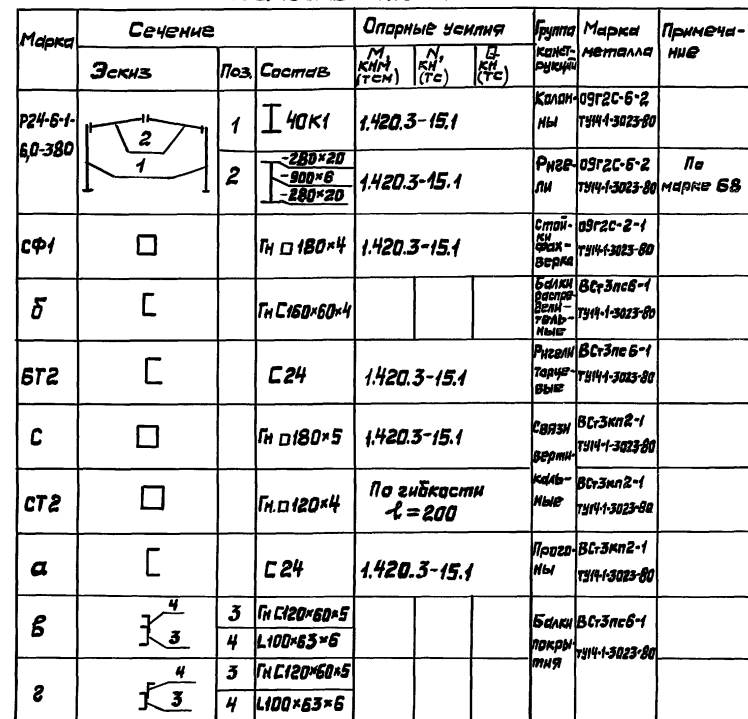 Марка Сечение Опорные усилия Группа конст- рукций Марка металла Примеча- ние
Эскиз Поз. Состав M, кнм (тсм) N, кн (тс) Q кн (тс)
Р24-6-1- 6,0-380 2 1 1 I 40К1 1.420.3-15.1 Колон- ны 09г2С-6-2 ТУ14-1-3023-80
2 -280×20 -900×6 -280×20 1.420.3-15.1 Риге- ли 09г2С-6-2 ТУ14-1-3023-80 По марке 68
СФ1 Гн □ 180×4 1.420.3-15.1 Стой- ки фах- верка 09г2С-2-1 ТУ14-1-3023-80
б Гн С160×60×4 Балки распре- дели- тель- ные ВСт3пс6-1 ТУ14-1-3023-80
БТ2 С24 1.420.3-15.1 Ригели торце- вые ВСт3пс6-1 ТУ14-1-3023-80
С Гн □180×5 1.420.3-15.1 Связи верти- каль- ные ВСт3кп2-1 ТУ14-1-3023-80
СТ2 Гн.□120×4 По гибкости ℓ=200 ВСт3кп2-1 ТУ14-1-3023-80
а С24 1.420.3-15.1 Прого- ны ВСт3кп2-1 ТУ14-1-3023-80
в 4 3 3 Гн С120×60×5 Балки покры- тия ВСт3пс6-1 ТУ14-1-3023-80
4 L100×63×6
г 4 3 3 Гн С120×60×5
4 L100×63×6